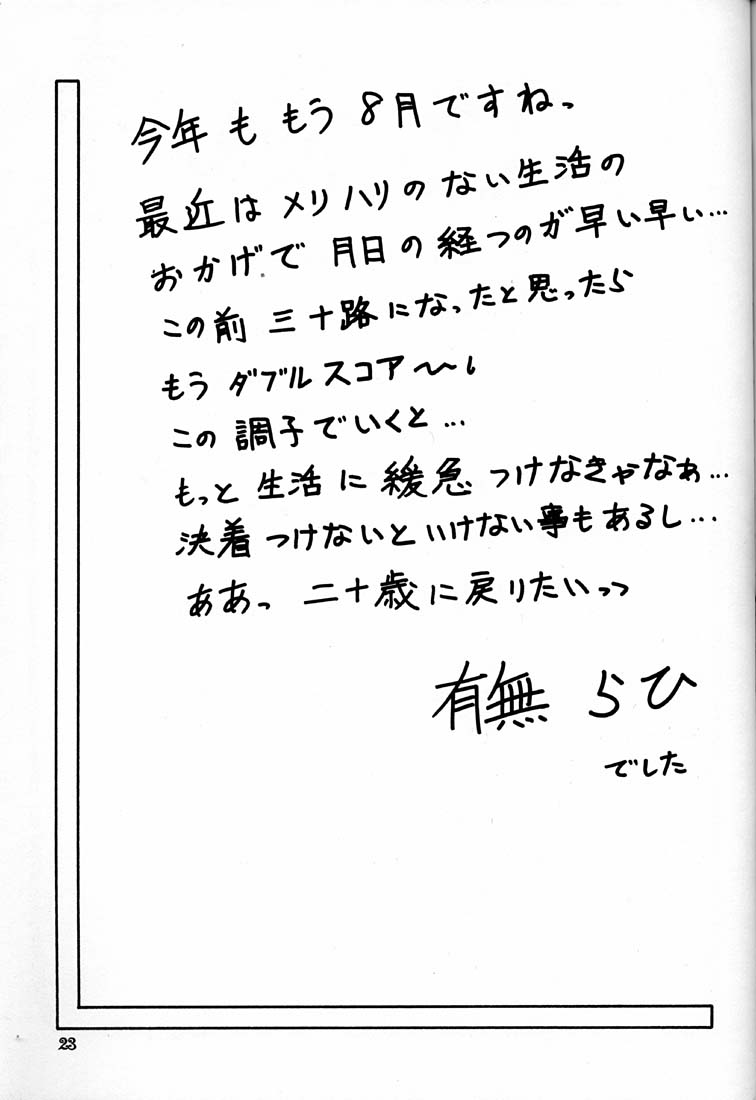 今年ももう8月ですねっ
最近はメリハリのない生活の
おかげで月日の経つのが早い早ぃ…
この前三十路になったと思ったら
もうダブルスコア〜〜!
この調子でいくと…
もっと生活に緩急つけなきゃなぁ…
決着つけないといけない事もあるし…
ああっ二十歳に戻りたいっっ
有無らひ
でした
23